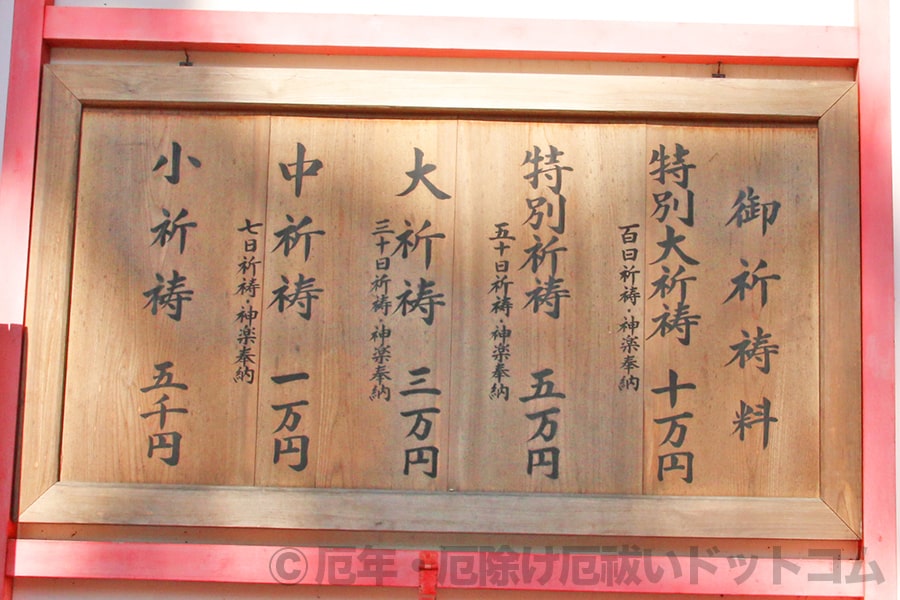 御祈祷料
特別大祈祷 十万円
百日祈祷・神楽奉納
特別祈祷 五万円
五十日祈祷・神楽奉納
大祈祷 三万円
三十日祈祷・神楽奉納
中祈祷 一万円
七日祈祷・神楽奉納
小祈祷 五千円
© 厄年・厄除け厄祓いドットコム